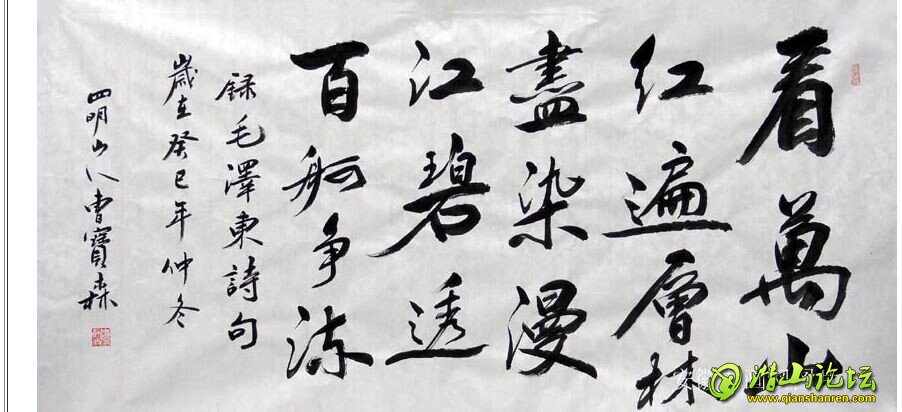 看萬山
红遍層林
盡染漫
江碧透
百舸争流
録毛澤東詩句
歲在癸巳年仲冬
四明山人曹寶森
潜山论坛
www.qianshanren.com